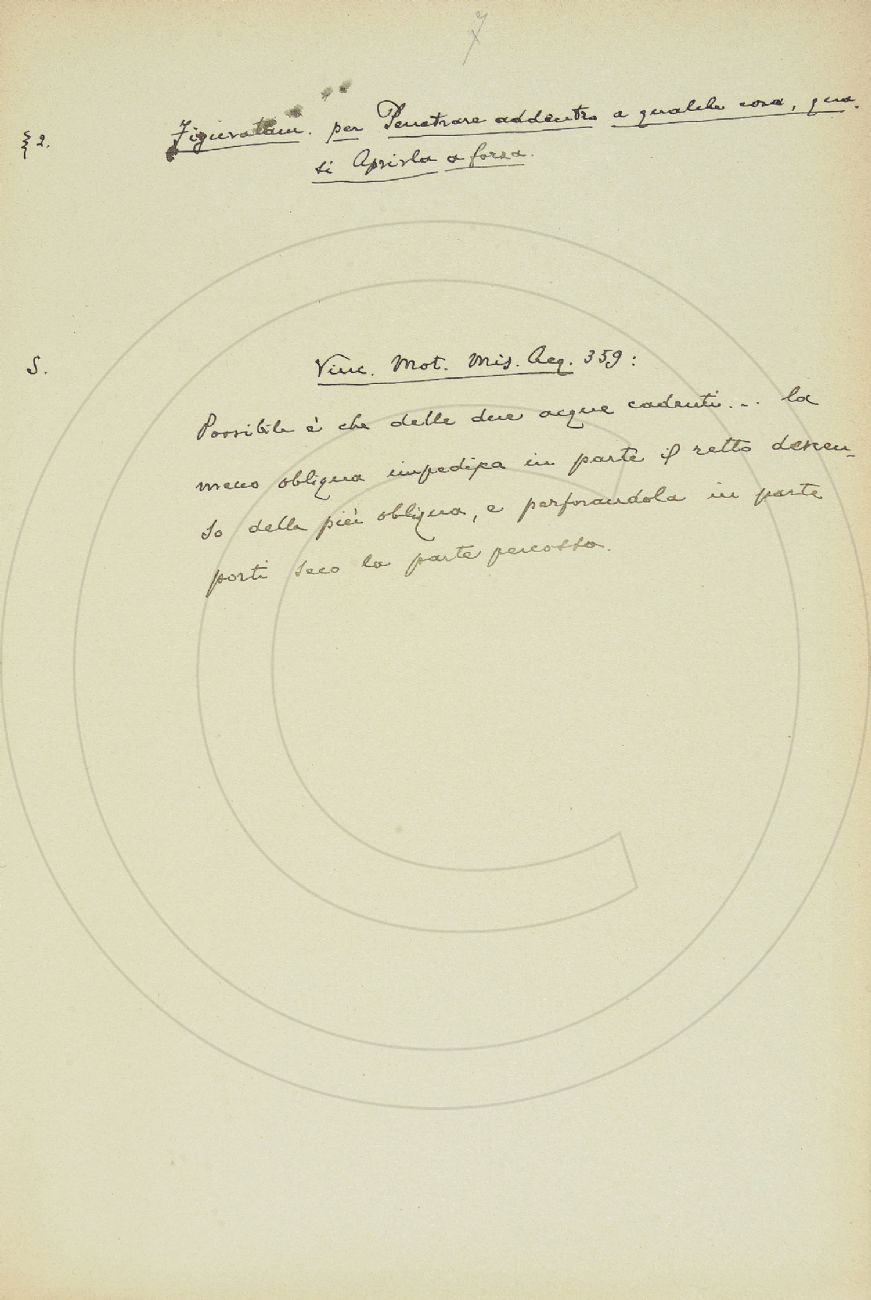 7
§ 2. Figuratam. per Penetrare addentro a qualche cosa, qua-
si Aprirla a forza.
S. Vinc. Mot. Mis. Acq. 359:
Possibile è che delle due acque cadenti... la
meno obliqua impedisca in parte il retto descen-
so della più obliqua, e perforandola in parte
porti seco la parte percossa.